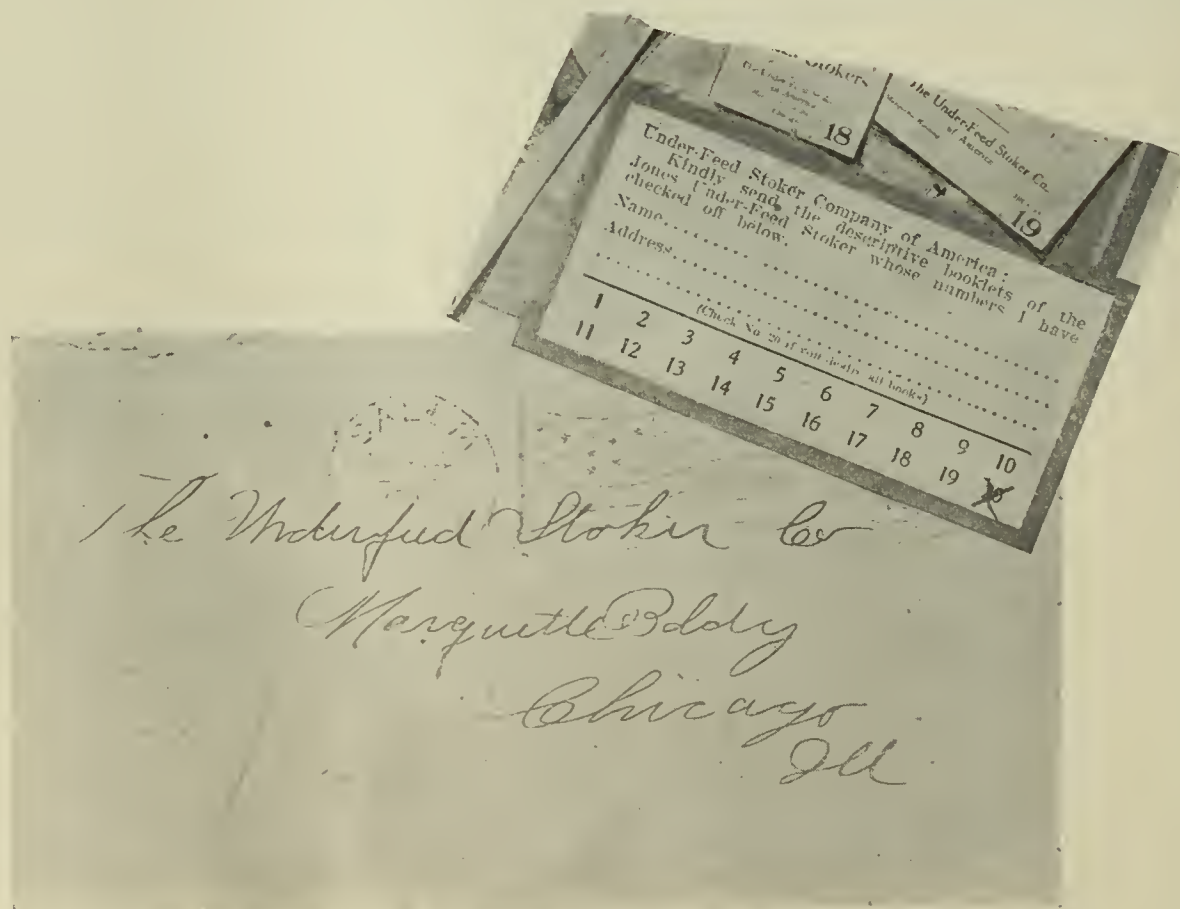 Stokers
18
The Under-Feed Stoker Co.
of America
19
Under-Feed Stoker Company of America:
Kindly send the descriptive booklets of the
Jones Under-Feed Stoker whose numbers I have
checked off below.
Name
Address
(Check No. 20 if you desire all books)
1 2 3 4 5 6 7 8 9 10
11 12 13 14 15 16 17 18 19
The Underfeed Stoker Co
Marquette Bldg
Chicago
Ill